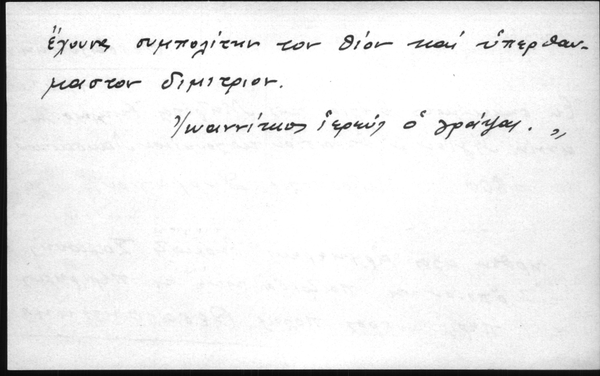 ἔχουνε συμπολίτην τον θίον καί ὑπερθαυ-
μαστον διμιτριον.
Ἰωαννίκιος ἱερεύς ὁ γράψας. »